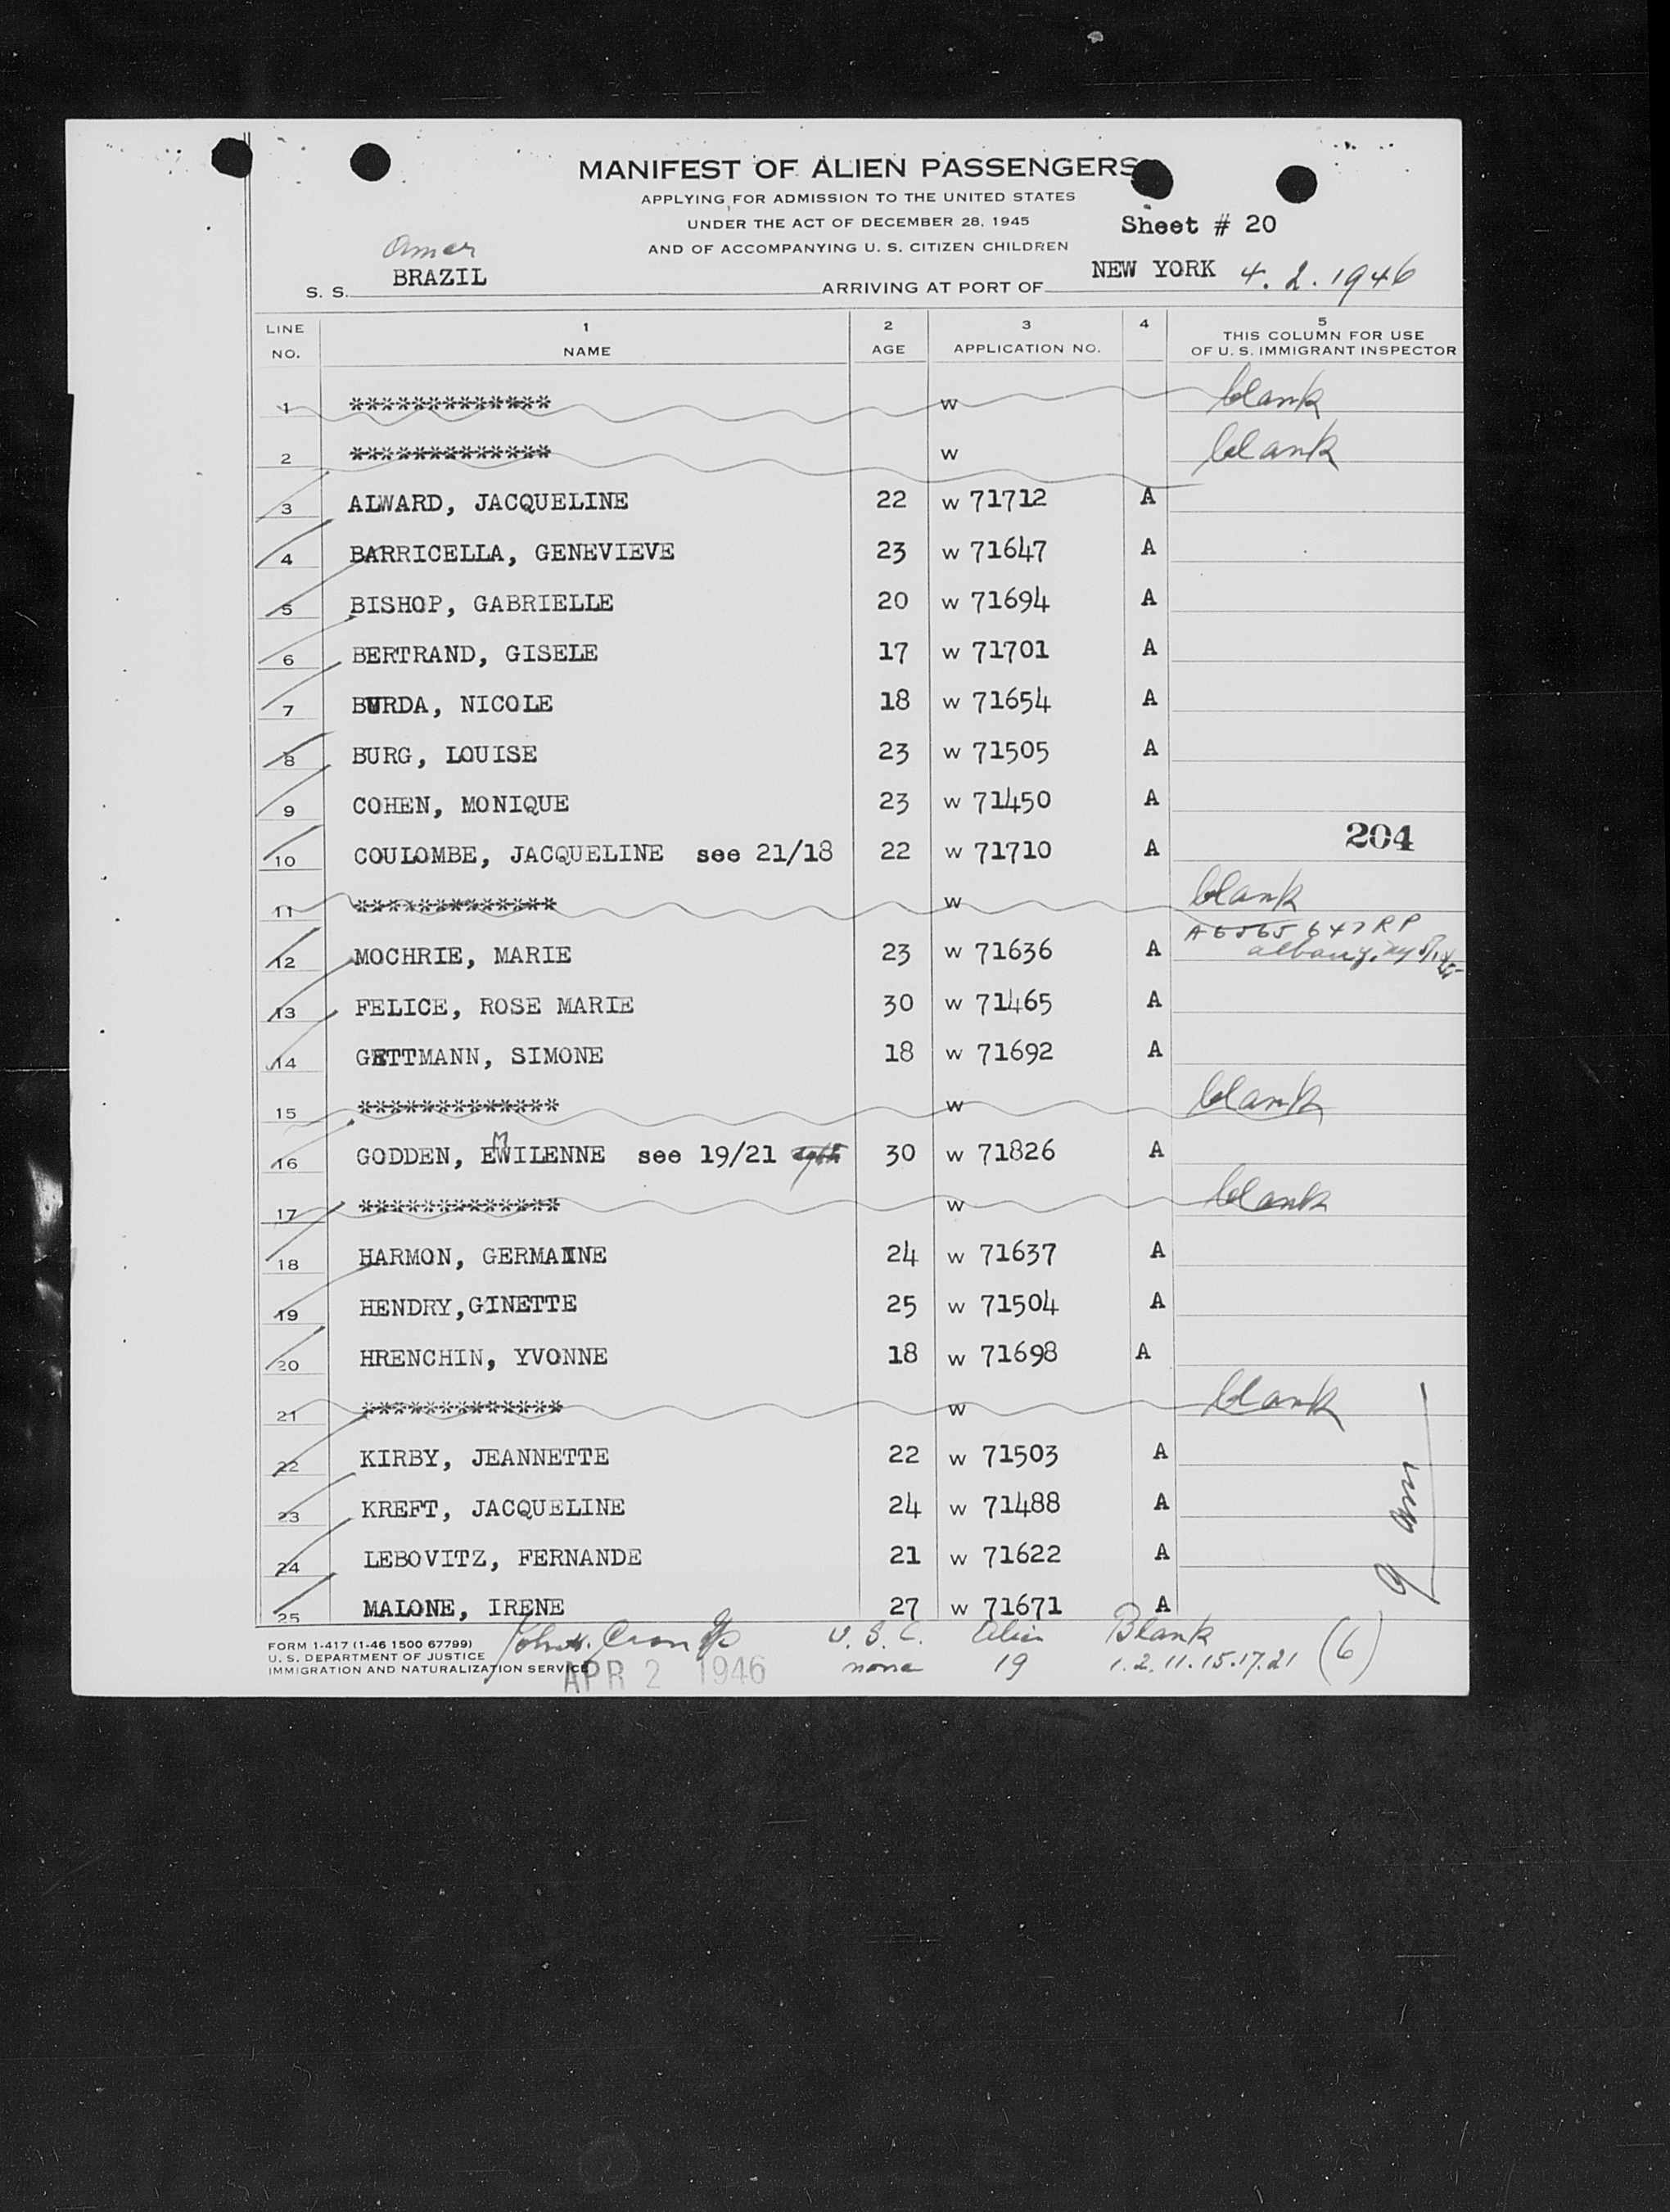 MANIFEST OF ALIEN PASSENGERS
APPLYING FOR ADMISSION TO THE UNITED STATES
UNDER THE ACT OF DECEMBER 28, 1945
AND OF ACCOMPANYING U. S. CITIZEN CHILDREN
Sheet # 20
Amer
S. S. BRAZIL ARRIVING AT PORT OF NEW YORK 4.2.1946
LINE NO. 1 NAME 2 AGE 3 APPLICATION NO. 4 5 THIS COLUMN FOR USE OF U. S. IMMIGRANT INSPECTOR
1 ************* W blank
2 ************* W blank
3 ALWARD, JACQUELINE 22 W 71712 A
4 BARRICELLA, GENEVIEVE 23 W 71647 A
5 BISHOP, GABRIELLE 20 W 71694 A
6 BERTRAND, GISELE 17 W 71701 A
7 BURDA, NICOLE 18 W 71654 A
8 BURG, LOUISE 23 W 71505 A
9 COHEN, MONIQUE 23 W 71450 A
10 COULOMBE, JACQUELINE see 21/18 22 W 71710 A 204
11 ************* W blank
12 MOCHRIE, MARIE 23 W 71636 A A6565647 RP albany, ny
13 FELICE, ROSE MARIE 30 W 71465 A
14 GETTMANN, SIMONE 18 W 71692 A
15 ************* W blank
16 GODDEN, EMILENNE see 19/21 30 W 71826 A
17 ************* W blank
18 HARMON, GERMAINE 24 W 71637 A
19 HENDRY,GINETTE 25 W 71504 A
20 HRENCHIN, YVONNE 18 W 71698 A
21 ************* W blank
22 KIRBY, JEANNETTE 22 W 71503 A
23 KREFT, JACQUELINE 24 W 71488 A
24 LEBOVITZ, FERNANDE 21 W 71622 A
25 MALONE, IRENE 27 W 71671 A
9 am
FORM I-417 (1-46 1500 67799)
U. S. DEPARTMENT OF JUSTICE
IMMIGRATION AND NATURALIZATION SERVICE
APR 2 1946
U.S.C. Alien Blank
none 19 1.2.11.15.17.21 (6)